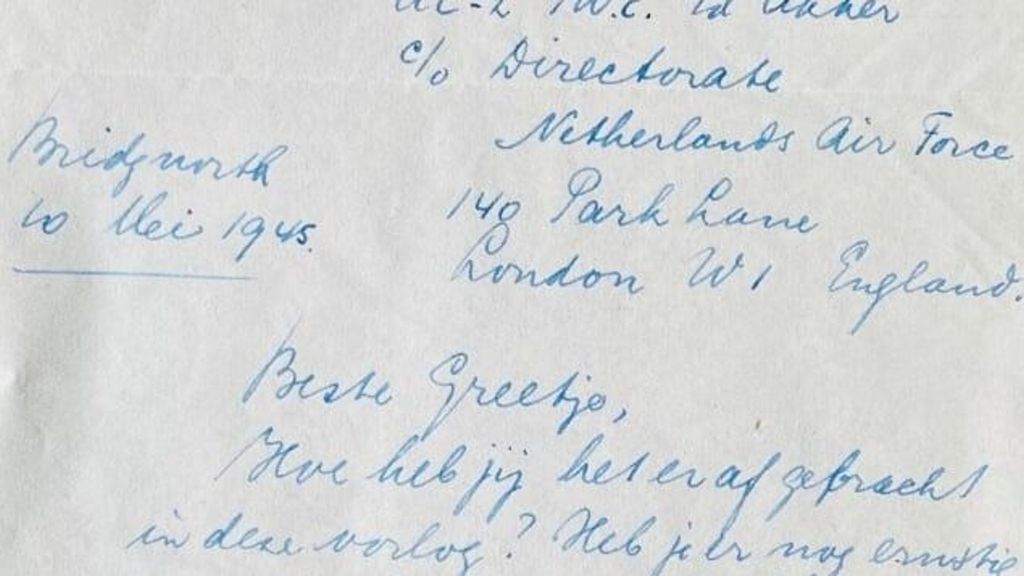 c/o Directorate
Netherlands Air Force
Bridgnorth
10 Mei 1945.
140 Park Lane
London W1 England.
Beste Greetje,
Hoe heb jij het er af gebracht
in deze oorlog? Heb je er nog ernstig